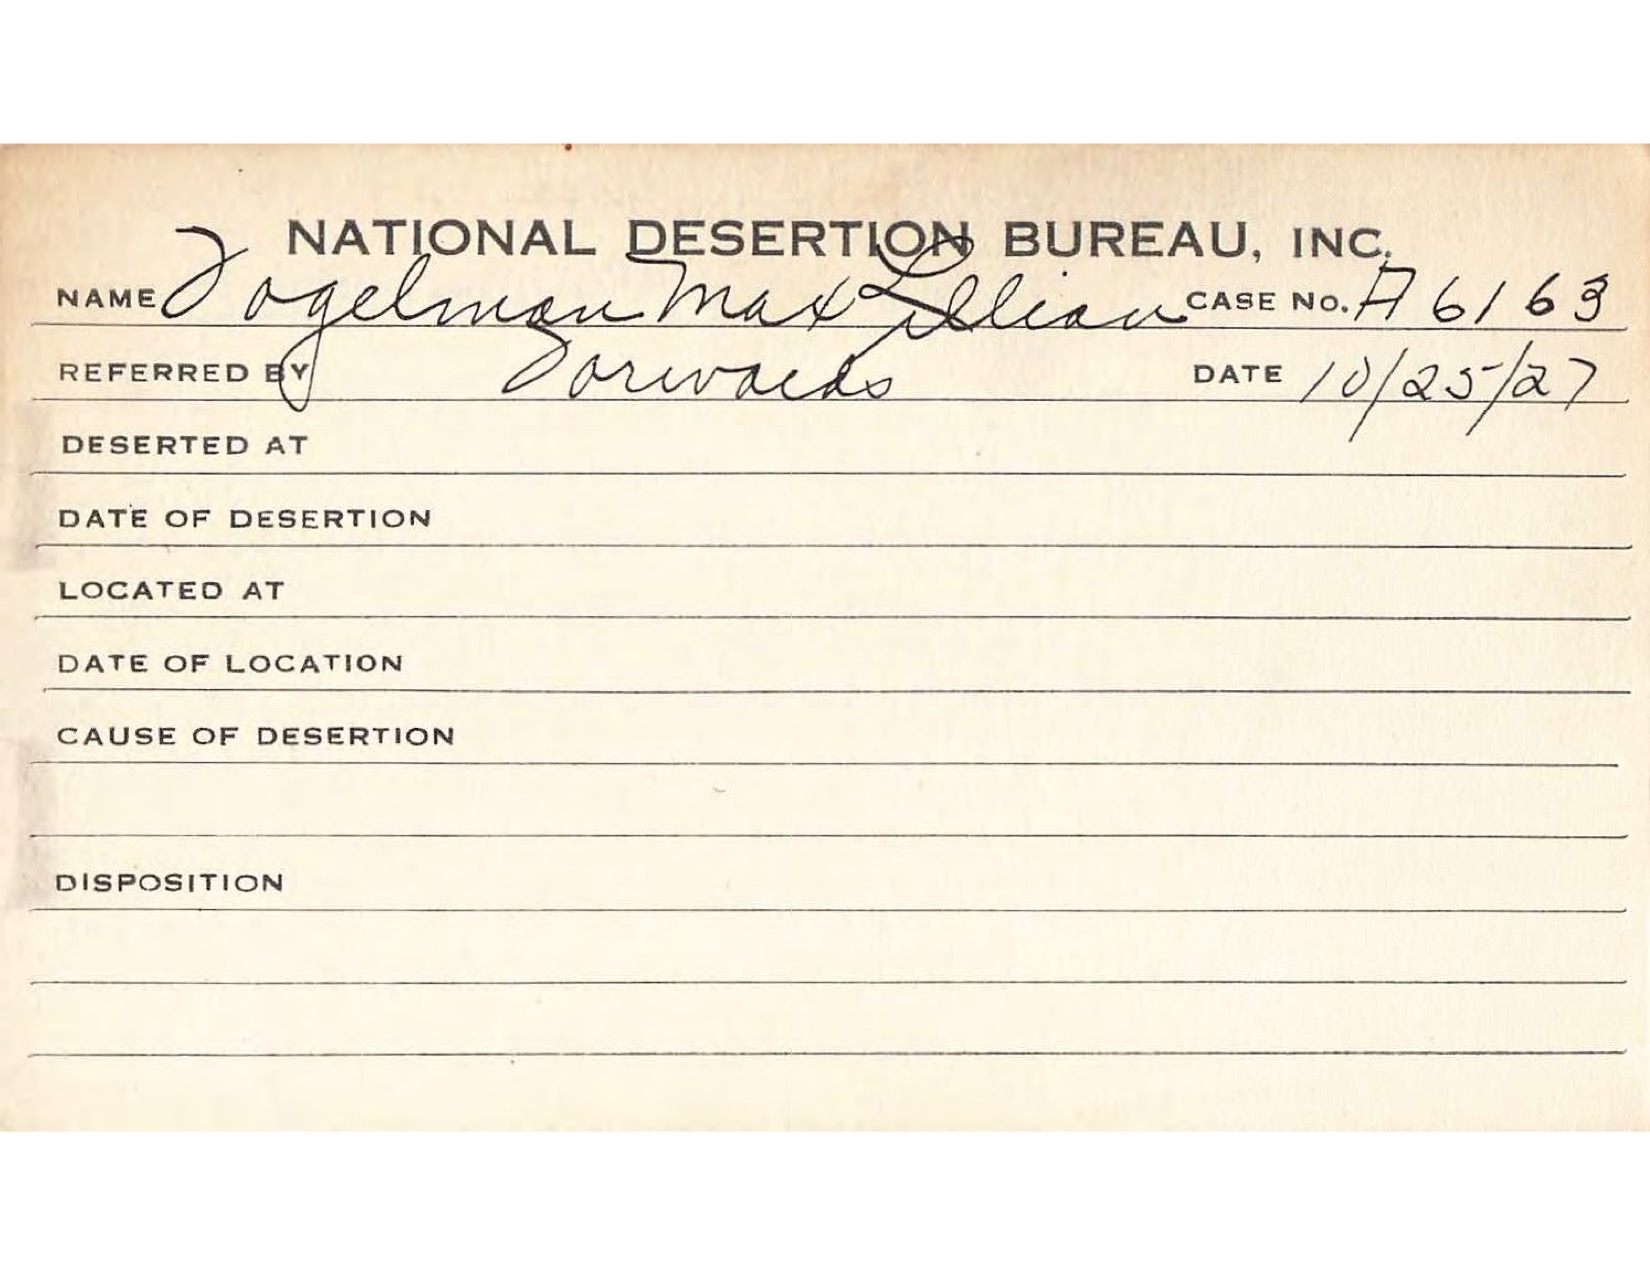 NATIONAL DESERTION BUREAU, INC.
NAME Fogelman Max Lillian CASE NO. A6163
REFERRED BY Forwards DATE 10/25/27
DESERTED AT
DATE OF DESERTION
LOCATED AT
DATE OF LOCATION
CAUSE OF DESERTION
DISPOSITION